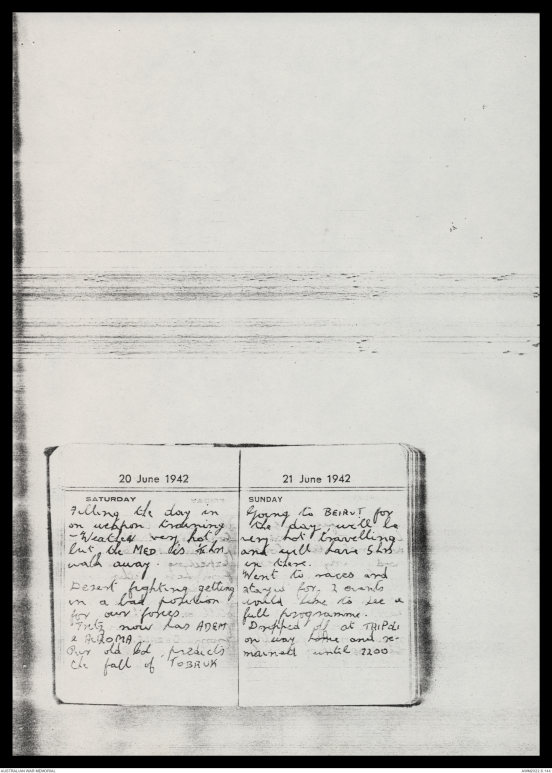 20 June 1942
SATURDAY
Filling the day in
on weapon training
- Weather very hot
but the MED is ½ hr
walk away.
Desert fighting getting
in a bad position
for our forces.
Fritz now has ADEM
& ACROMA
Our old Bd. predicts
the fall of TOBRUK
21 June 1942
SUNDAY
Going to BEIRUT for
the day, will be
very hot travelling
and will have 5 hrs
in there.
Went to races and
stayed for 2 events
would like to see a
full programme.
Dropped off at TRIPOLI
on way home and re-
mained until 2200
AUSTRALIAN WAR MEMORIAL